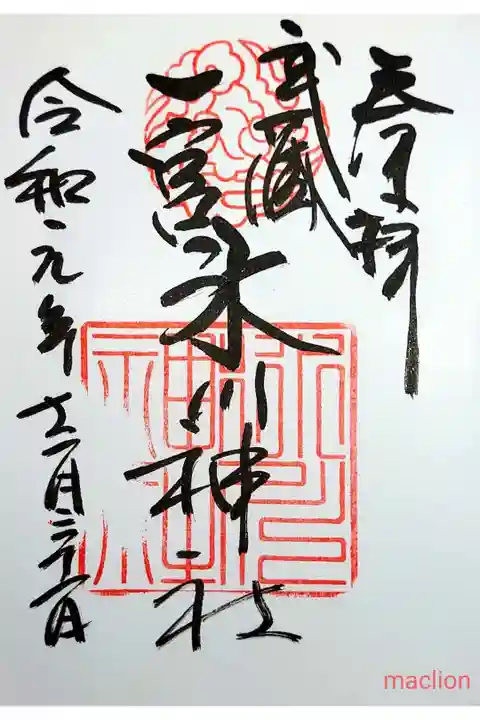 奉拝
武蔵
一宮氷川神社
令和元年十二月三十一日
maclion